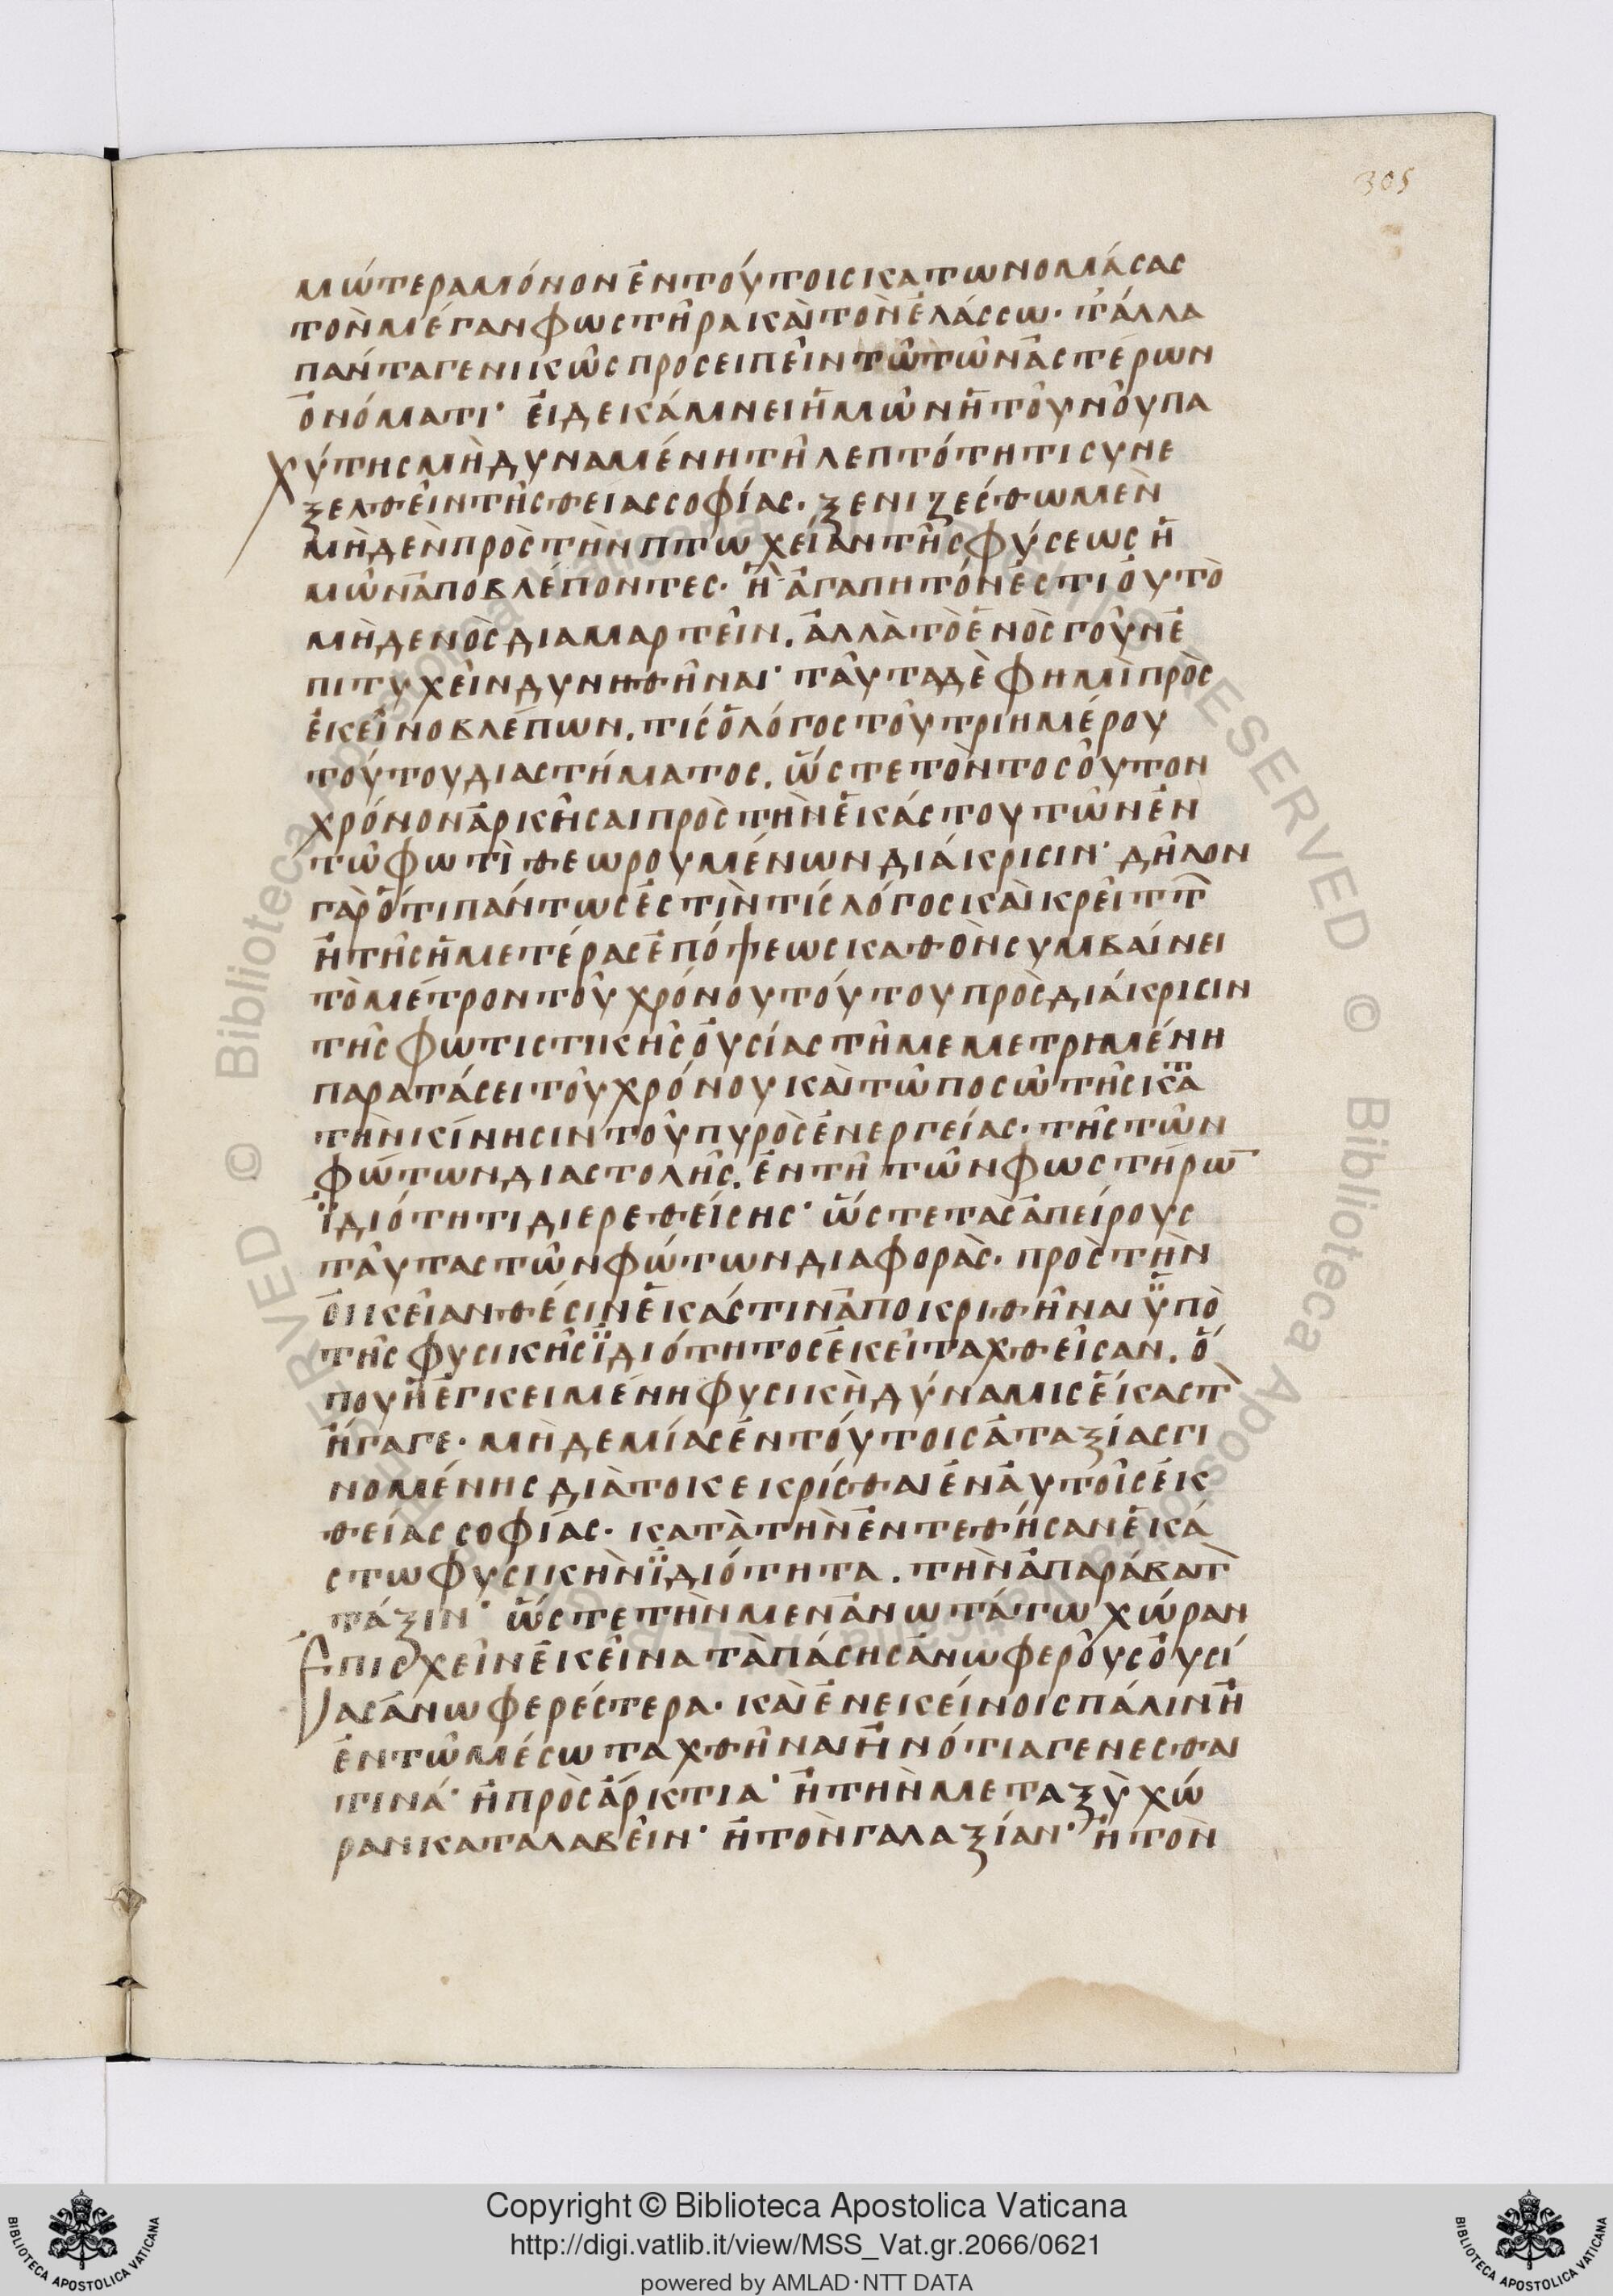 305
μώτερα μόνον ἐν τούτοις κατωνομάσας
τὸν μέγαν φωστῆρα καὶ τὸν ἐλάσσω· τἆλλα
πάντα γενικῶς προσειπεῖν τῶ τῶν ἀστέρων
ὀνόματι· εἰ δε κάμνει ἡμῶν ἡ τοῦ νοῦ πα
χύτης μὴ δυναμένη τῆ λεπτότητι συνε
ξελθεῖν τῆς θείας σοφίας· ξενιζέσθω μὲν
μηδὲν πρὸς τὴν πτωχείαν τῆς φύσεως ἡ
μῶν ἀποβλέποντες· ἧ ἀγαπητόν ἐστι οὐ τὸ
μηδενὸς διαμαρτεῖν. ἀλλὰ τὸ ἑνὸς γοῦν ἐ
πιτυχεῖν δυνηθῆναι· ταῦτα δὲ φημὶ πρὸς
ἐκεῖνο βλέπων. τίς ὁ λόγος τοῦ τριημέρου
τούτου διαστήματος. ὥστε τὸν τοσοῦτον
χρόνον ἀρκῆσαι πρὸς τὴν ἑκάστου τῶν ἐν
τῶ φωτὶ θεωρουμένων διάκρισιν· δῆλον
γὰρ ὅτι πάντως ἐστὶν τίς λόγος καὶ κρείττ
ἢ τῆς ἡμετέρας ἐπόψεως καθ ὃν συμβαίνει
τὸ μέτρον τοῦ χρόνου τούτου πρὸς διάκρισιν
τῆς φωτιστικῆς οὐσίας τῆ μεμετρημένη
παρατάσει τοῦ χρόνου καὶ τῶ ποσῶ τῆς κατα
τὴν κίνησιν τοῦ πυρὸς ἐνεργείας· τῆς τῶν
φώτων διαστολῆς. ἐν τῆ τῶν φωστήρω
ϊδιότητι διερεθείσης· ὥστε τὰς ἀπείρους
ταύτας τῶν φώτων διαφοράς· πρὸς τὴν
οἰκείαν θέσιν ἑκάστιν ἀποκριθῆναι ϋπὸ
τῆς φυσικῆς ϊδιότητος ἐκεῖ ταχθεῖσαν. ὅ
που ἡ ἐγκειμένη φυσικὴ δύναμις ἕκαστ
ἤγαγε· μὴδεμίας ἐν τούτοις ἀταξίας γι
νομένης διὰ το κεκρίσθαι ἐν αὐτοῖς ἐκ
θείας σοφίας· κατὰ τὴν ἐντεθήσαν ἑκά
στω φυσικὴν ϊδιότητα. τὴν ἀπαράβατ
τάξιν· ὥστε τὴν μεν ἀνωτάτω χώραν
ἐπισχεῖν ἐκεῖνα τὰ πάσης ἀνωφεροῦς οὐσί
ας ἀνωφερέστερα· καὶ ἐν εκείνοις πάλιν ἢ
ἐν τῶ μέσω ταχθῆναι ἢ νότια γενεσθαι
τινά· ἢ πρὸς ἄρκτια· ἢ τὴν μεταξὺ χώ
ραν καταλαβεῖν· ἢ τὸν γαλαξίαν· ἢ τον
© Biblioteca Apostolica Vaticana
RESERVED
Copyright © Biblioteca Apostolica Vaticana
http://digi.vatlib.it/view/MSS_Vat.gr.2066/0621
powered by AMLAD·NTT DATA
BIBLIOTECA APOSTOLICA VATICANA
BIBLIOTECA APOSTOLICA VATICANA